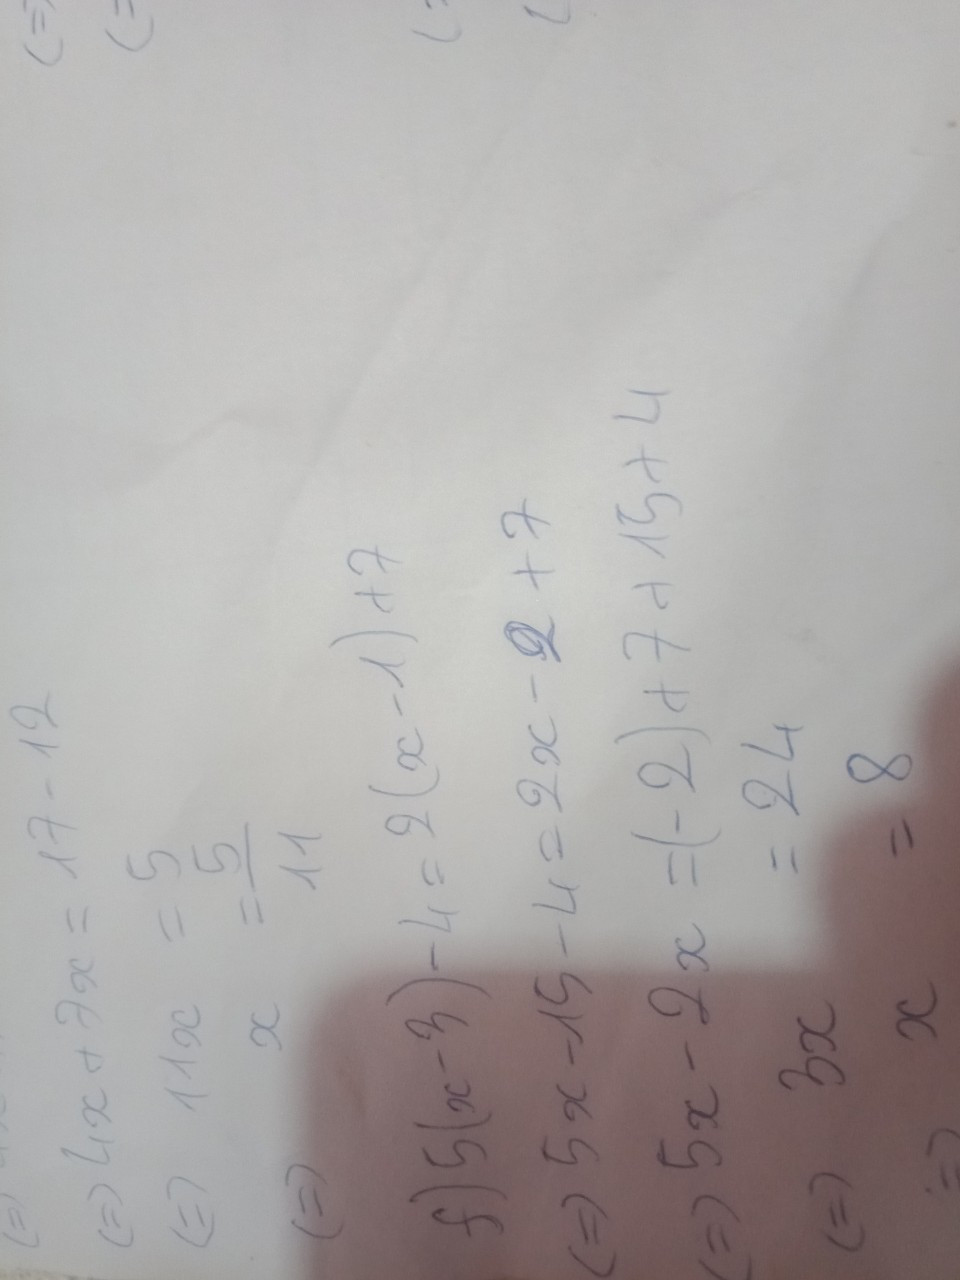 (=) 4x + 7x = 17 - 12
(=) 11x = 5
(=) x = 5/11
f) 5(x-3) - 4 = 2(x-1) + 7
(=) 5x - 15 - 4 = 2x - 2 + 7
(=) 5x - 2x = (-2) + 7 + 15 + 4
(=) 3x = 24
(=) x = 8